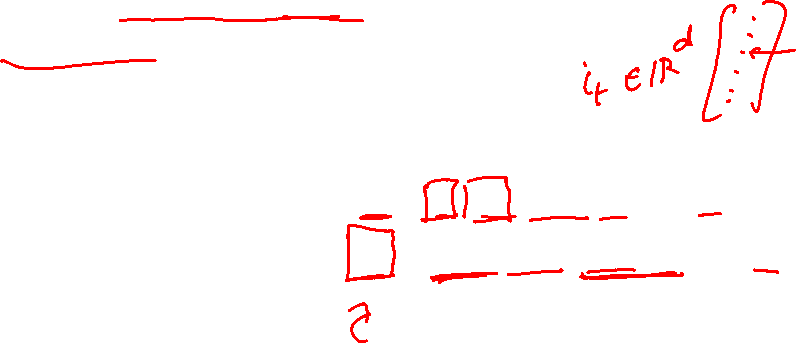 i_t ∈ ℝ^d [⋮]